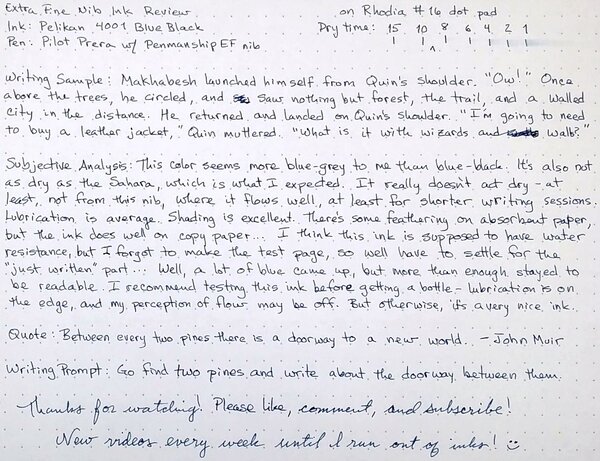 Extra Fine Nib Ink Review on Rhodia #16 dot pad
Ink: Pelikan 4001 Blue Black Dry time: 15 10 8 6 4 2 1
Pen: Pilot Prera w/ Penmanship EF nib
Writing Sample: Makhabesh launched himself from Quin's shoulder. "Ow!" Once
above the trees, he circled, and saw nothing but forest, the trail, and a walled
city in the distance. He returned and landed on Quin's shoulder. "I'm going to need
to buy a leather jacket," Quin muttered. "What is it with wizards and walls?"
Subjective Analysis: This color seems more blue-grey to me than blue-black. It's also not
as dry as the Sahara, which is what I expected. It really doesn't act dry - at
least, not from this nib, where it flows well, at least for shorter writing sessions.
Lubrication is average. Shading is excellent. There's some feathering on absorbent paper,
but the ink does well on copy paper... I think this ink is supposed to have water
resistance, but I forgot to make the test page, so we'll have to settle for the
"just written" part... Well, a lot of blue came up, but more than enough stayed to
be readable. I recommend testing this ink before getting a bottle - lubrication is on
the edge, and my perception of flow may be off. But otherwise, it's a very nice ink.
Quote: Between every two pines there is a doorway to a new world. - John Muir
Writing Prompt: Go find two pines and write about the doorway between them.
Thanks for watching! Please like, comment, and subscribe!
New videos every week until I run out of inks!